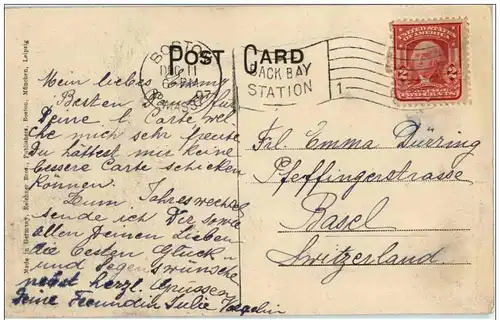 POST CARD
BOSTON
DEC 11
6 PM
07
MASS.
BACK BAY
STATION
1
UNITED STATES OF AMERICA
2 2
Made in Germany, Reichner Bros. Publishers, Boston, München, Leipzig
Mein liebes Emma
Besten Dank für
Deine l. Carte wel
che mich sehr freute
Du hättest mir keine
bessere Carte schicken
können.
Zum Jahreswechsel
sende ich Dir sowie
allen Deinen Lieben
die besten Glück-
und Segenswünsche
nebst herzl. Grüssen
Deine Freundin Julie
Frl. Emma Dürring
Pfeffingerstrasse
Basel
Switzerland